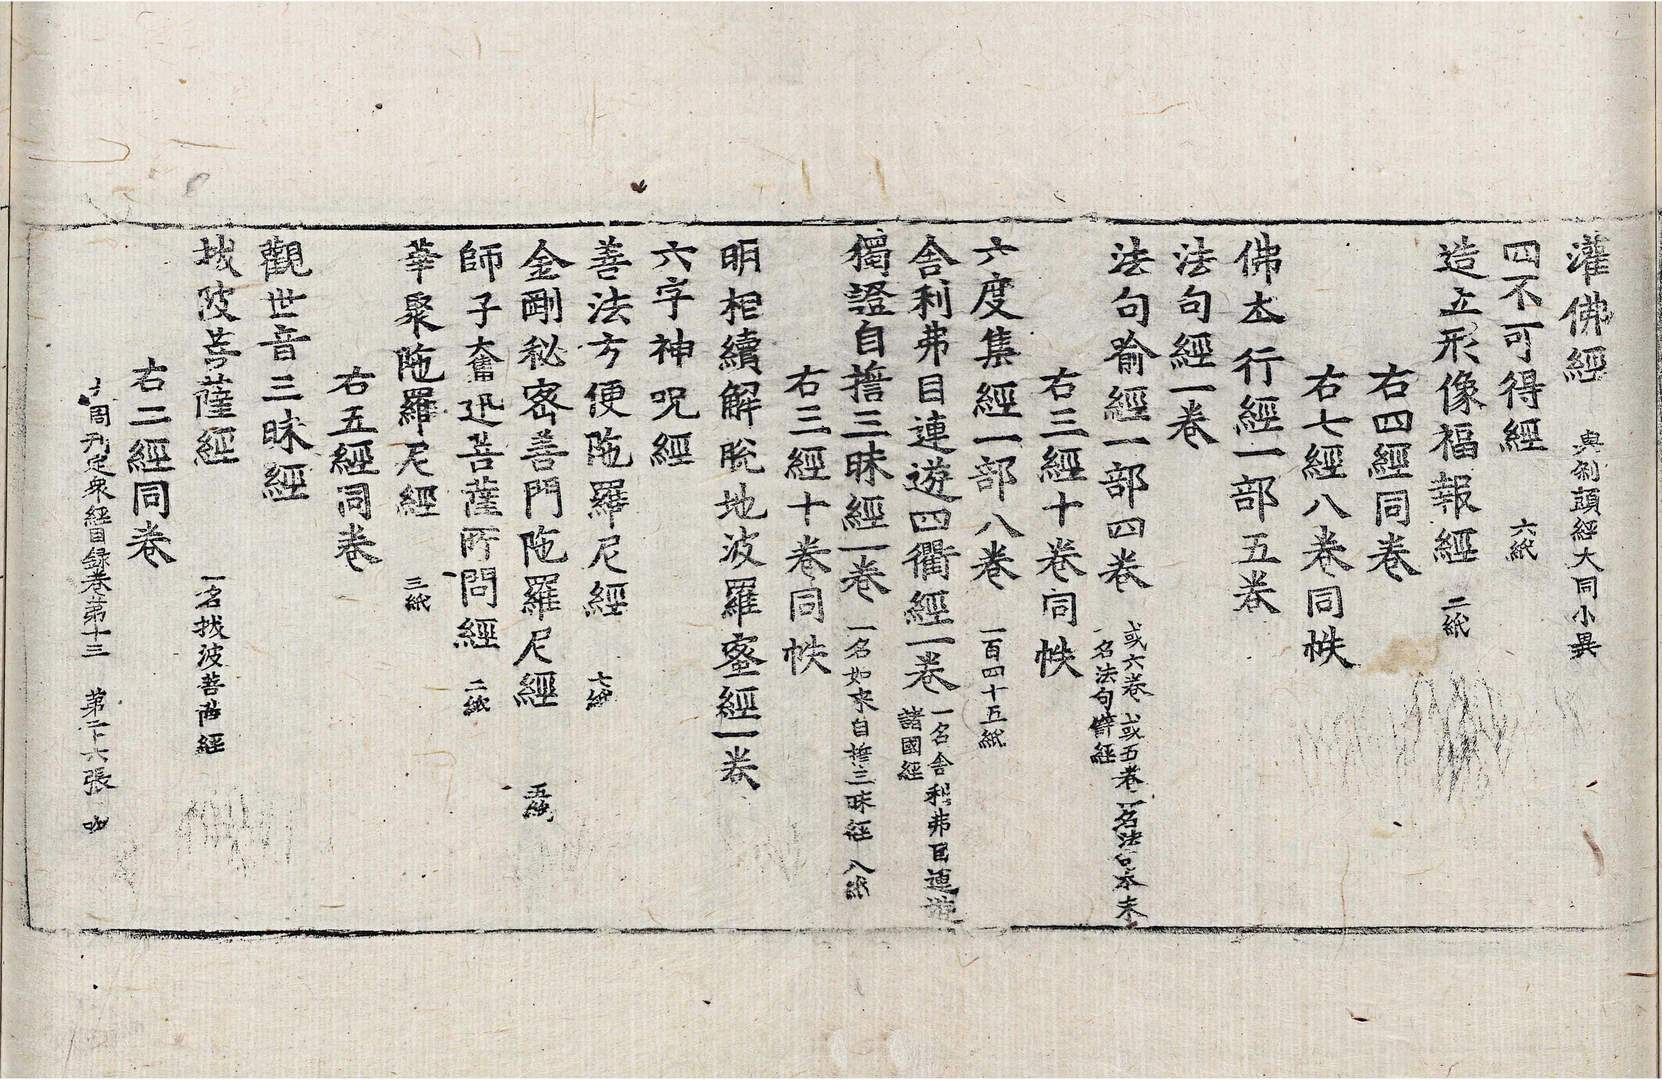 灌佛經 與剎頭經大同小異
四不可得經 六紙
造立形像福報經 二紙
右四經同卷
右七經八卷同帙
佛本行經一部五卷
法句經一卷
法句喻經一部四卷 或六卷 或五卷 一名法句本末
一名法句譬經
右三經十卷同帙
六度集經一部八卷 一百四十五紙
舍利弗目連遊四衢經一卷 一名舍利弗目連遊
諸國經
獨證自誓三昧經一卷 一名如來自誓三昧經 八紙
右三經十卷同帙
明相續解脫地波羅蜜經一卷
六字神呪經
善法方便陁羅尼經 七紙
金剛秘密善門陁羅尼經 五紙
師子奮迅菩薩所問經 二紙
華聚陁羅尼經 三紙
右五經同卷
觀世音三昧經
㧞陂菩薩經 一名拔波菩薩經
右二經同卷
大周刊定衆經目録卷第十三 第二十六張